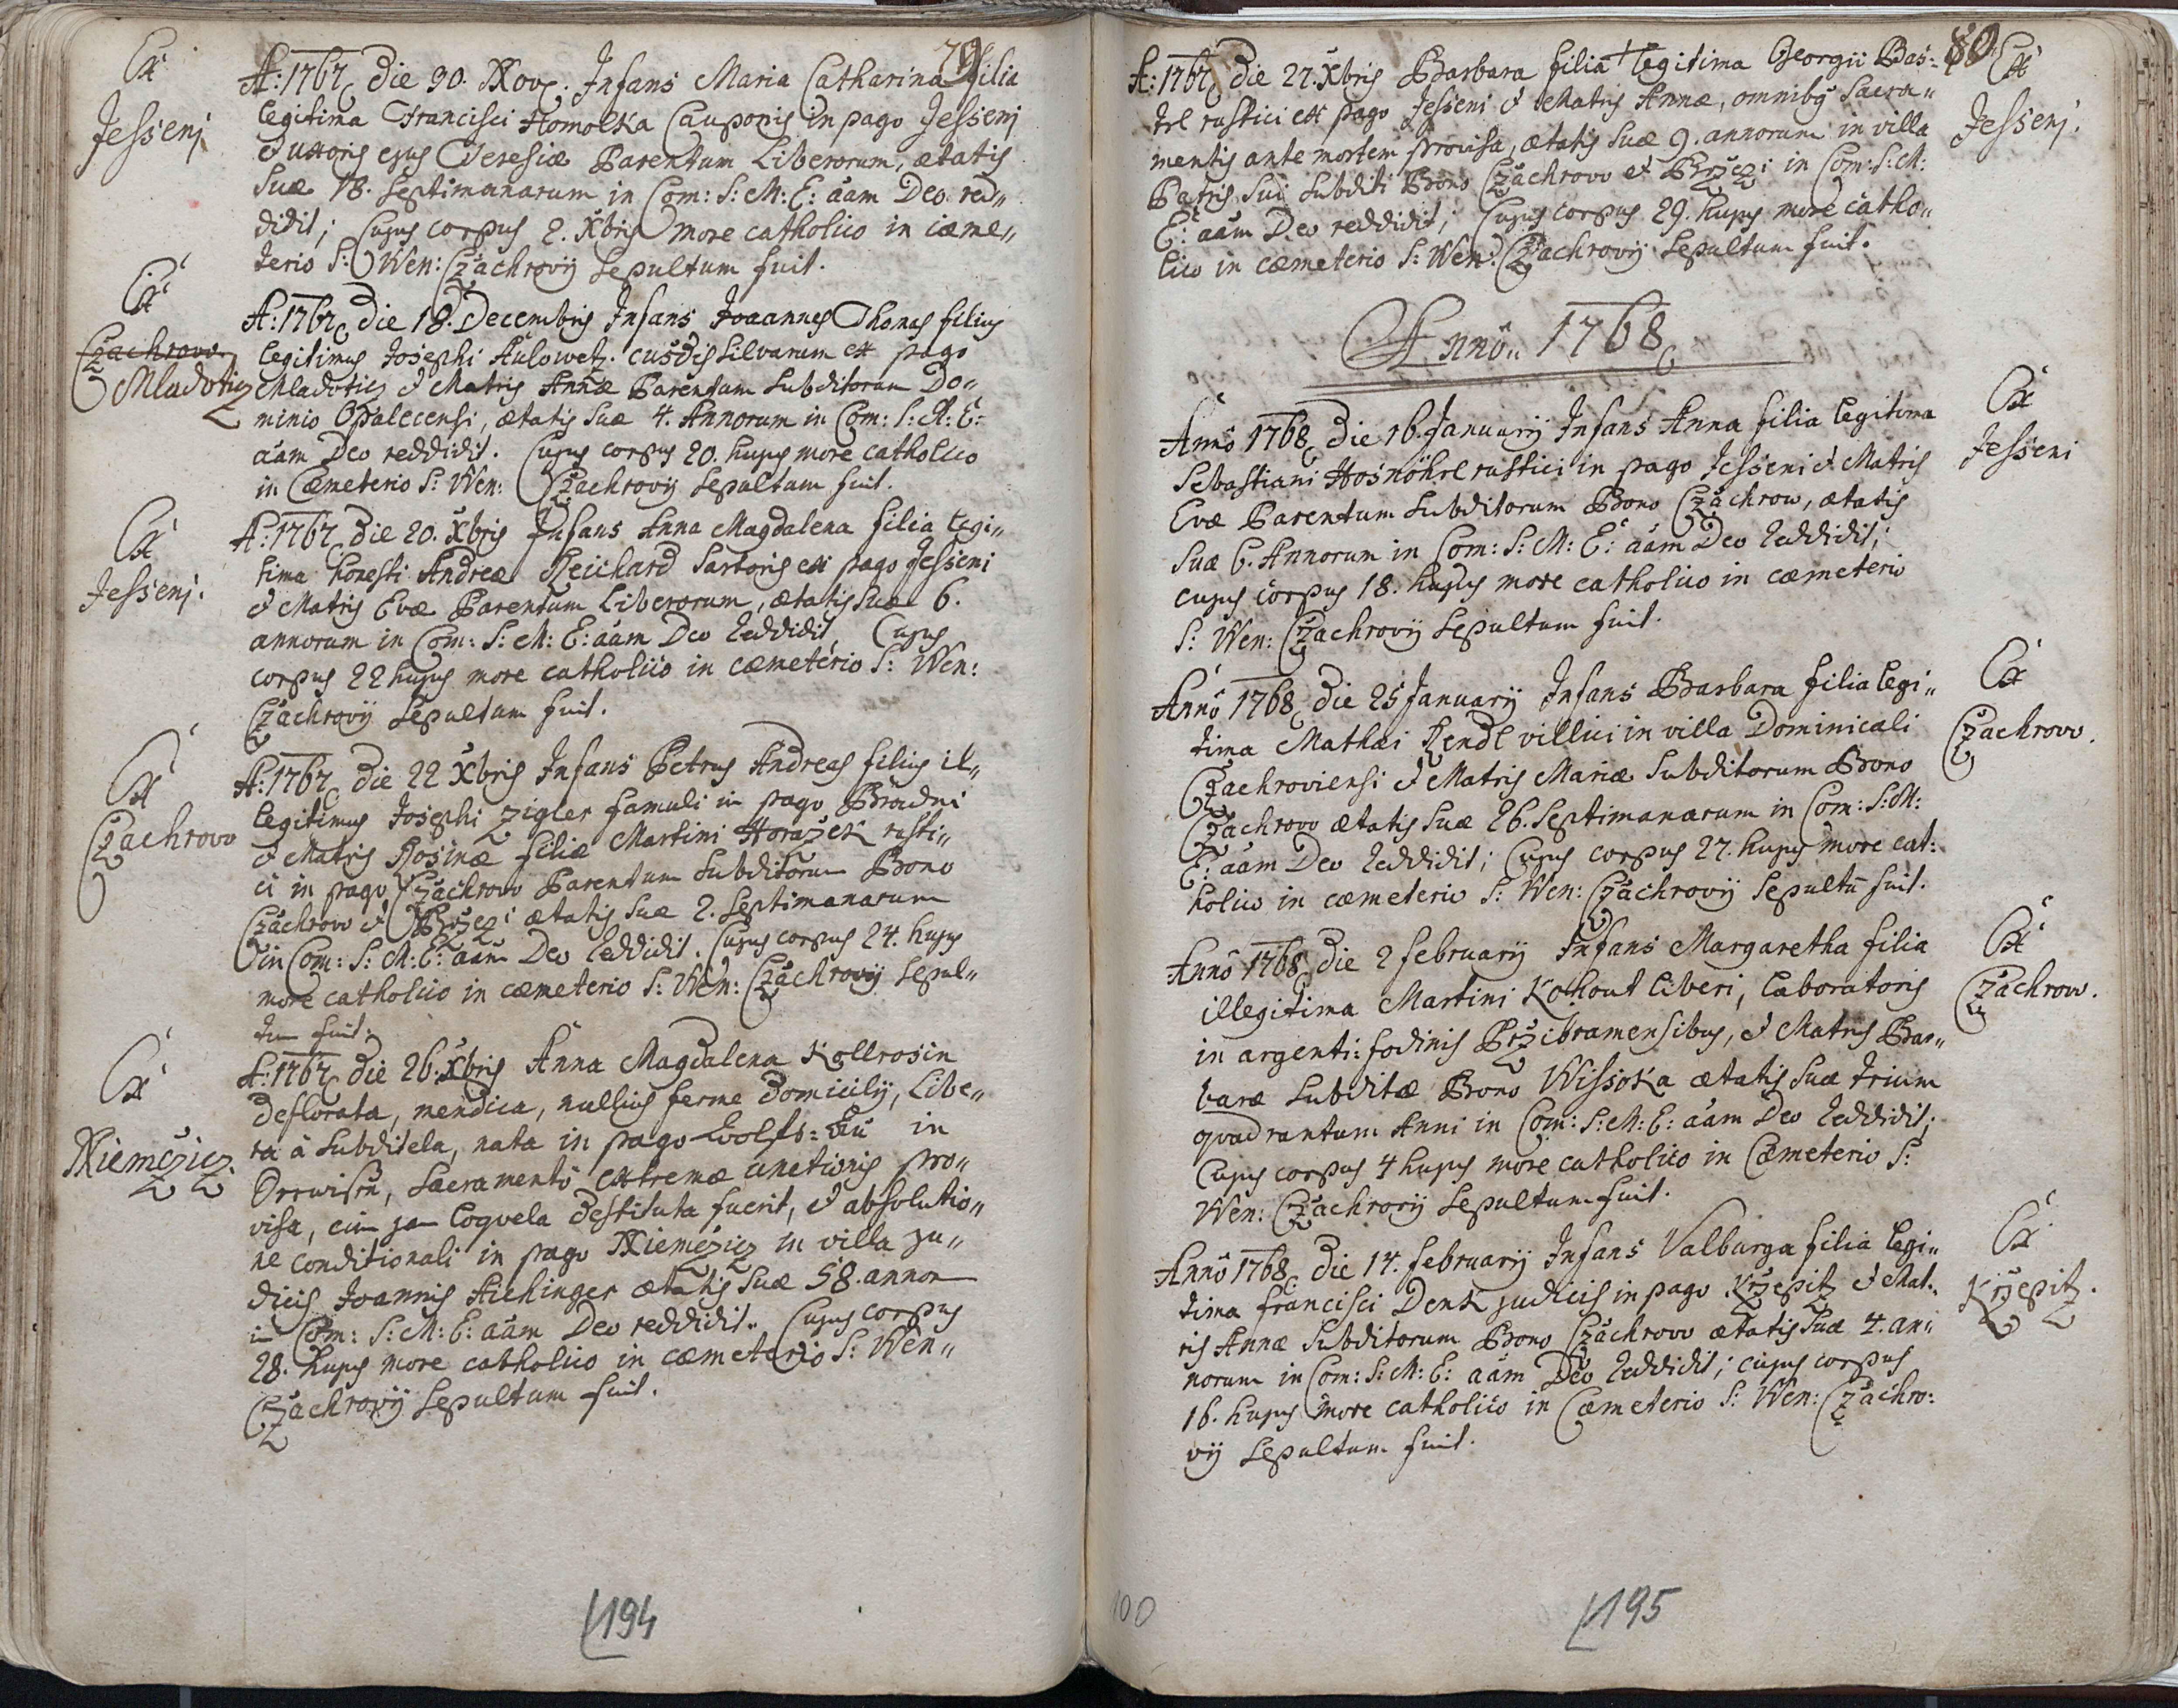 79
Ex
Jessenj
A: 1767 die 30. Nov. Infans Maria Catharina filia
legitima Francisci Homolka Cauponis in pago Jessenj
et uxoris ejus Teresiæ Parentum Liberorum, ætatis
suæ 18. septimanarum in Com: S: M: E: aam Deo red„
didit; Cujus corpus 2. Xbris more catholico in cæme„
terio S: Wen: Czachrovij sepultum fuit.
Ex
Czachrow
Mladotiz
A: 1767 die 18. Decembris Infans Joannes Thomas filius
legitimus Josephi Aulowetz. custodis silvarum ex pago
Mladotiz et Matris Annæ Parentum subditorum Do„
minio Opalecensi, ætatis suæ 4. Annorum in Com: S: M: E:
aam Deo reddidit. Cujus corpus 20. hujus more catholico
in Cæmeterio S: Wen: Czachrovij sepultum fuit.
Ex
Jessenj.
A: 1767 die 20. Xbris Infans Anna Magdalena filia legi„
tima honesti Andreæ Reichard Sartoris ex pago Jesseni
et Matris Evæ Parentum Liberorum, ætatis suæ 6.
annorum in Com: S: M: E: aam Deo reddidit, Cujus
corpus 22 hujus more catholico in cæmeterio S: Wen:
Czachrovij sepultum fuit.
Ex
Czachrow
A: 1767 die 22 Xbris Infans Petrus Andreas filius il„
legitimus Josephi Zigler famuli in pago Brudni
et Matris Rosinæ filiæ Martini Horazek rusti„
ci in pago Czachrow Parentum subditorum Bono
Czachrow et ætatis suæ 2. septimanarum
in Com: S: M: E: aam Deo reddidit. Cujus corpus 24. hujus
more catholico in cæmeterio S: Wen: Czachrovij sepul„
tum fuit.
Ex
Niemčziz.
A: 1767 die 26. Xbris Anna Magdalena Kollrosin
deflorata, mendica, nullius ferme domicilij, Libe„
ra à subditela, nata in pago Wolfs=au in
sacramento extremæ unctionis pro„
visa, cum jam loquela destituta fuerit, et absolutio„
ne conditionali in pago Niemčziz in villa ju„
dicis Joannis Aichinger ætatis suæ 58. annor
in Com: S: M: E: aam Deo reddidit. Cujus corpus
28. hujus more catholico in cæmeterio S: Wen„
Czachrovij sepultum fuit.
194
80
Ex
Jessenj.
A: 1767 die 27. Xbris Barbara filia + legitima Georgii Bas=
tl rustici ex pago Jesseni et Matris Annæ, omnibus sacra„
mentis ante mortem provisa, ætatis suæ 9. annorum in villa
Patris sui subditi Bono Czachrow et in Com: S: M:
E: aam Deo reddidit; Cujus corpus 29. hujus more catho„
lico in cæmeterio S: Wen: Czachrovij sepultum fuit.
Anno„ 1768
Ex
Jesseni
Anno 1768 die 16. Januarij Infans Anna filia legitima
Sebastiani Hosnöhrl rustici in pago Jesseni et Matris
Evæ Parentum subditorum Bono Czachrow, ætatis
suæ 6. Annorum in Com: S: M: E: aam Deo reddidit;
cujus corpus 18. hujus more catholico in cæmeterio
S: Wen: Czachrovij sepultum fuit.
Ex
Czachrow.
Anno 1768 die 25 Januarij Infans Barbara filia legi„
tima Mathæi Rendl villici in villa Dominicali
Czachroviensi et Matris Mariæ subditorum Bono
Czachrow ætatis suæ 26. septimanarum in Com: S: M:
E: aam Deo reddidit; Cujus corpus 27. hujus more cat:
holico in cæmeterio S: Wen: Czachrovij sepultũ fuit.
Ex
Czachrow.
Anno 1768 die 2 februarij Infans Margaretha filia
illegitima Martini Kohout liberi, laboratoris
in argenti: fodinis Przibramensibus, et Matris Bar„
baræ subditæ Bono Wissoka ætatis suæ trium
quadrantum Anni in Com: S: M: E: aam Deo reddidit;
Cujus corpus 4 hujus more catholico in Cæmeterio S:
Wen: Czachrovij sepultum fuit.
Ex
Krzepitz.
Anno 1768 die 14. februarij Infans Valburga filia legi„
tima francisci Denk judicis in pago Krzepitz et Mat„
ris Annæ subditorum Bono Czachrow ætatis suæ 4. an„
norum in Com: S: M: E: aam Deo reddidit; cujus corpus
16. hujus more catholico in Cæmeterio S: Wen: Czachro:
vij sepultum fuit.
100
195